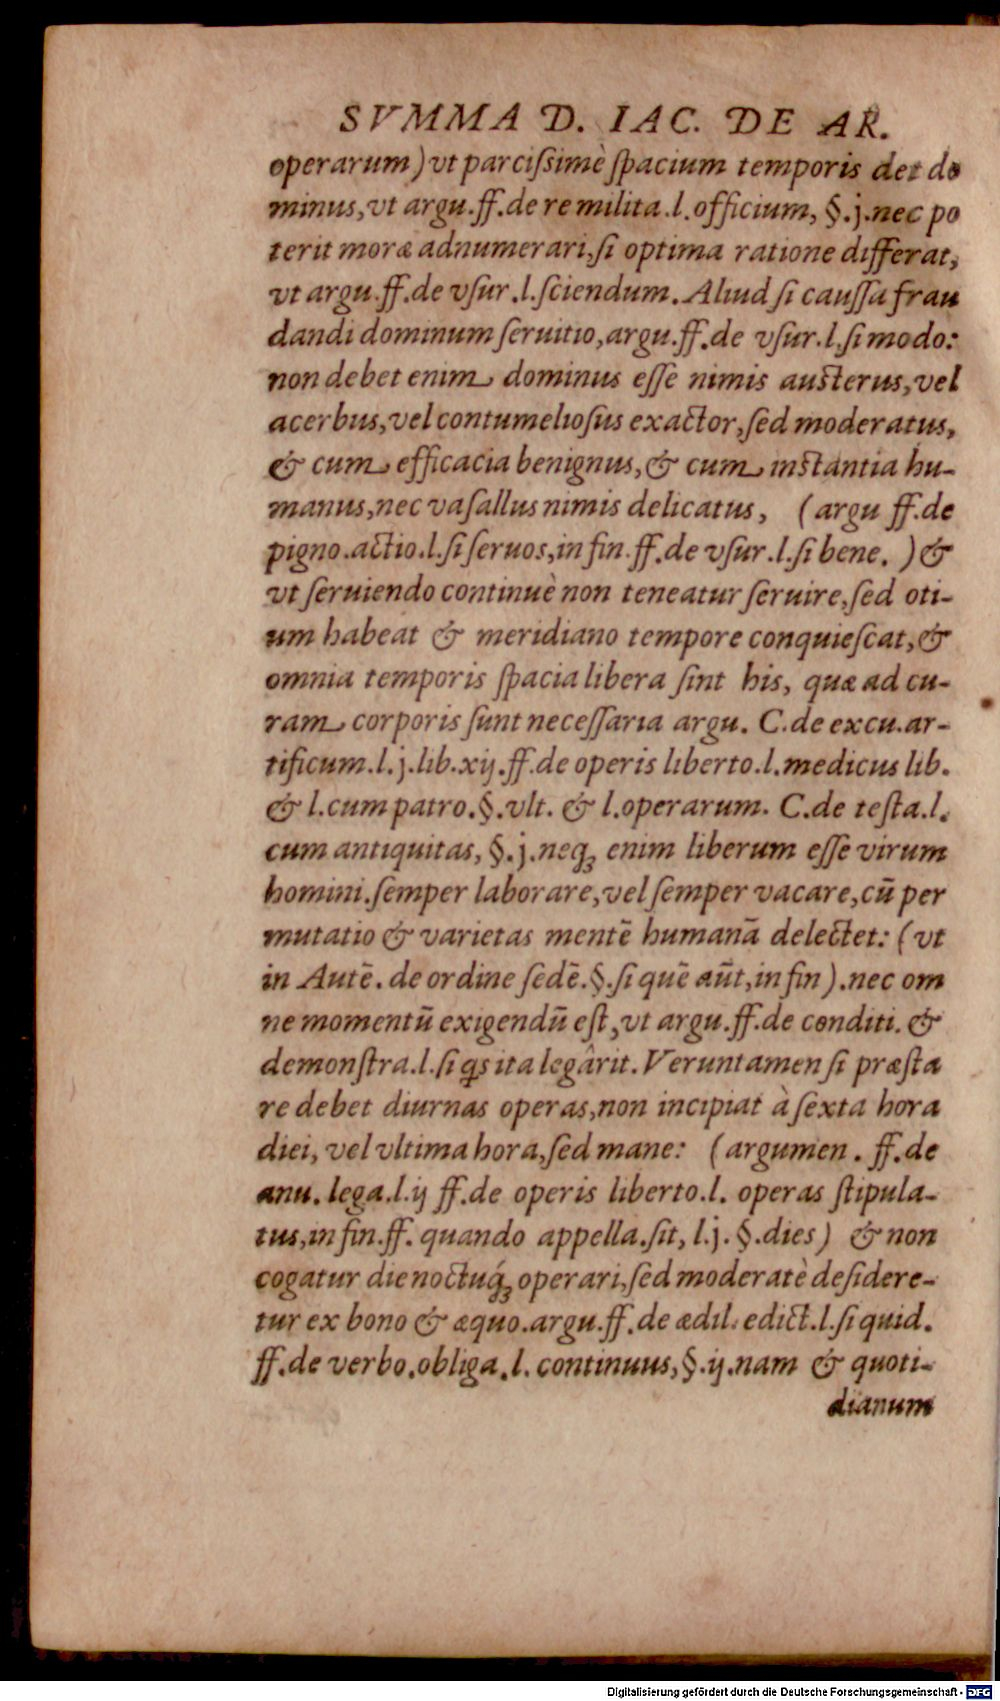 SVMMA D. IAC. DE AR.
operarum) vt parcißimè ſpacium temporis det do
minus, vt argu. ff. de re milita. l. officium, §. j. nec po
terit moræ adnumerari, ſi optima ratione differat,
vt argu. ff. de vſur. l. ſciendum. Aliud ſi cauſſa frau
dandi dominum ſeruitio, argu. ff. de vſur. l. ſi modo:
non debet enim dominus eſſe nimis auſterus, vel
acerbus, vel contumelioſus exactor, ſed moderatus,
& cum efficacia benignus, & cum inſtantia hu-
manus, nec vaſallus nimis delicatus, (argu ff. de
pigno. actio. l. ſi ſeruos, in fin. ff. de vſur. l. ſi bene. ) &
vt ſeruiendo continuè non teneatur ſeruire, ſed oti-
um habeat & meridiano tempore conquieſcat, &
omnia temporis ſpacia libera ſint his, quæ ad cu-
ram corporis ſunt neceſſaria argu. C. de excu. ar-
tificum. l. j. lib. xij. ff. de operis liberto. l. medicus lib.
& l. cum patro. §. vlt. & l. operarum. C. de teſta. l.
cum antiquitas, §. j. neqꝫ enim liberum eſſe virum
homini. ſemper laborare, vel ſemper vacare, cū per
mutatio & varietas mentē humanā delectet: (vt
in Autē. de ordine ſedē. §. ſi quē aūt, in fin). nec om
ne momentū exigendū eſt, vt argu. ff. de conditi. &
demonſtra. l. ſi qs ita legârit. Veruntamen ſi præſta
re debet diurnas operas, non incipiat à ſexta hora
diei, vel vltima hora, ſed mane: (argumen. ff. de
anu. lega. l. ij ff. de operis liberto. l. operas ſtipula-
tus, in fin. ff. quando appella. ſit, l. j. §. dies) & non
cogatur die noctuq́ꝫ operari, ſed moderatè deſidere-
tur ex bono & æquo. argu. ff. de ædil. edict. l. ſi quid.
ff. de verbo. obliga. l. continuus, §. ij. nam & quoti-
dianum
Digitalisierung gefördert durch die Deutsche Forschungsgemeinschaft - DFG